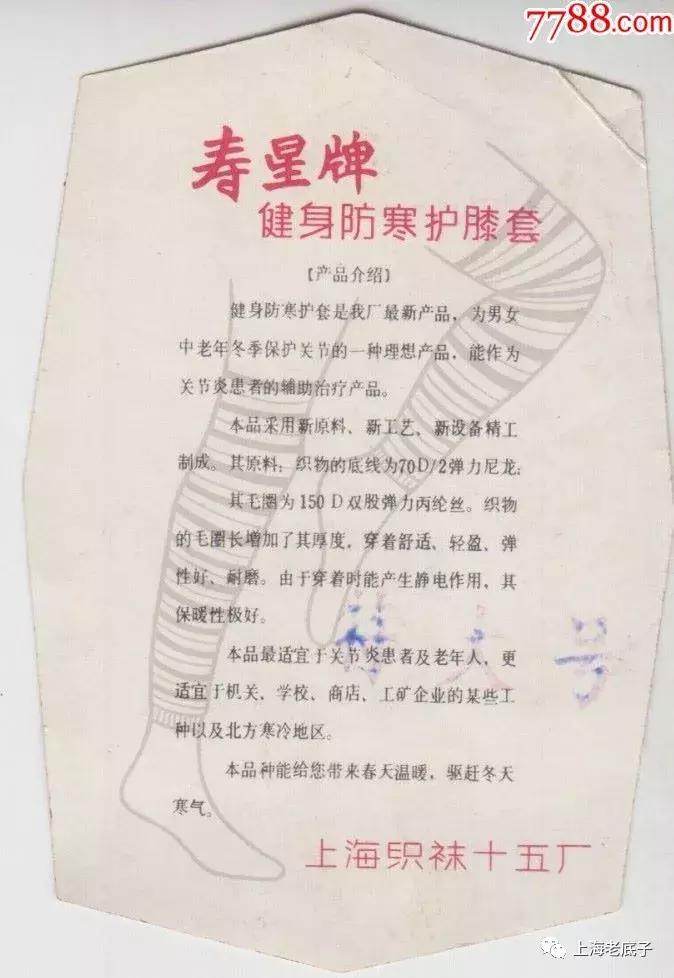 7788.com
寿星牌
健身防寒护膝套
【产品介绍】
健身防寒护套是我厂最新产品，为男女
中老年冬季保护关节的一种理想产品，能作为
关节炎患者的辅助治疗产品。
本品采用新原料、新工艺、新设备精工
制成。其原料：织物的底线为70D/2弹力尼龙；
其毛圈为150D双股弹力丙纶丝。织物
的毛圈长增加了其厚度，穿着舒适、轻盈、弹
性好、耐磨。由于穿着时能产生静电作用，其
保暖性极好。
本品最适宜于关节炎患者及老年人，更
适宜于机关、学校、商店、工矿企业的某些工
种以及北方寒冷地区。
本品种能给您带来春天温暖，驱赶冬天
寒气。
上海织袜十五厂
上海老底子